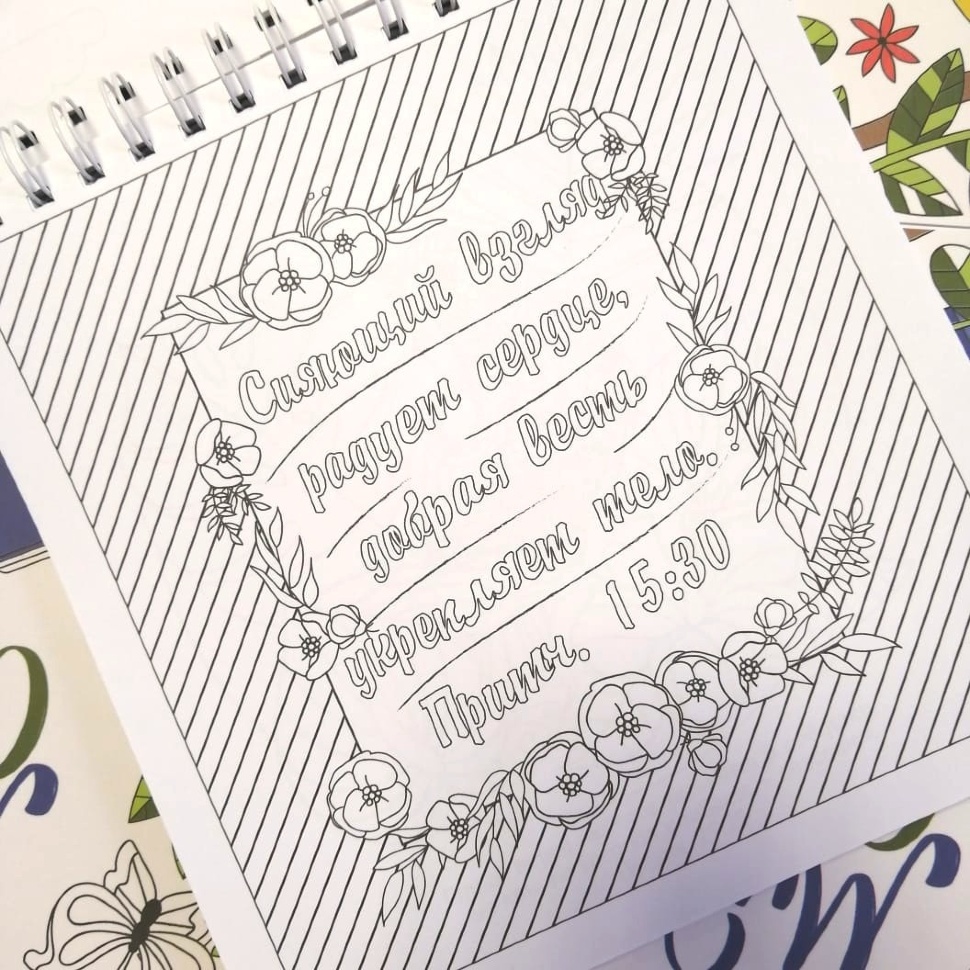 Сияющий взгляд
радует сердце,
добрая весть
укрепляет тело.
Притч. 15:30